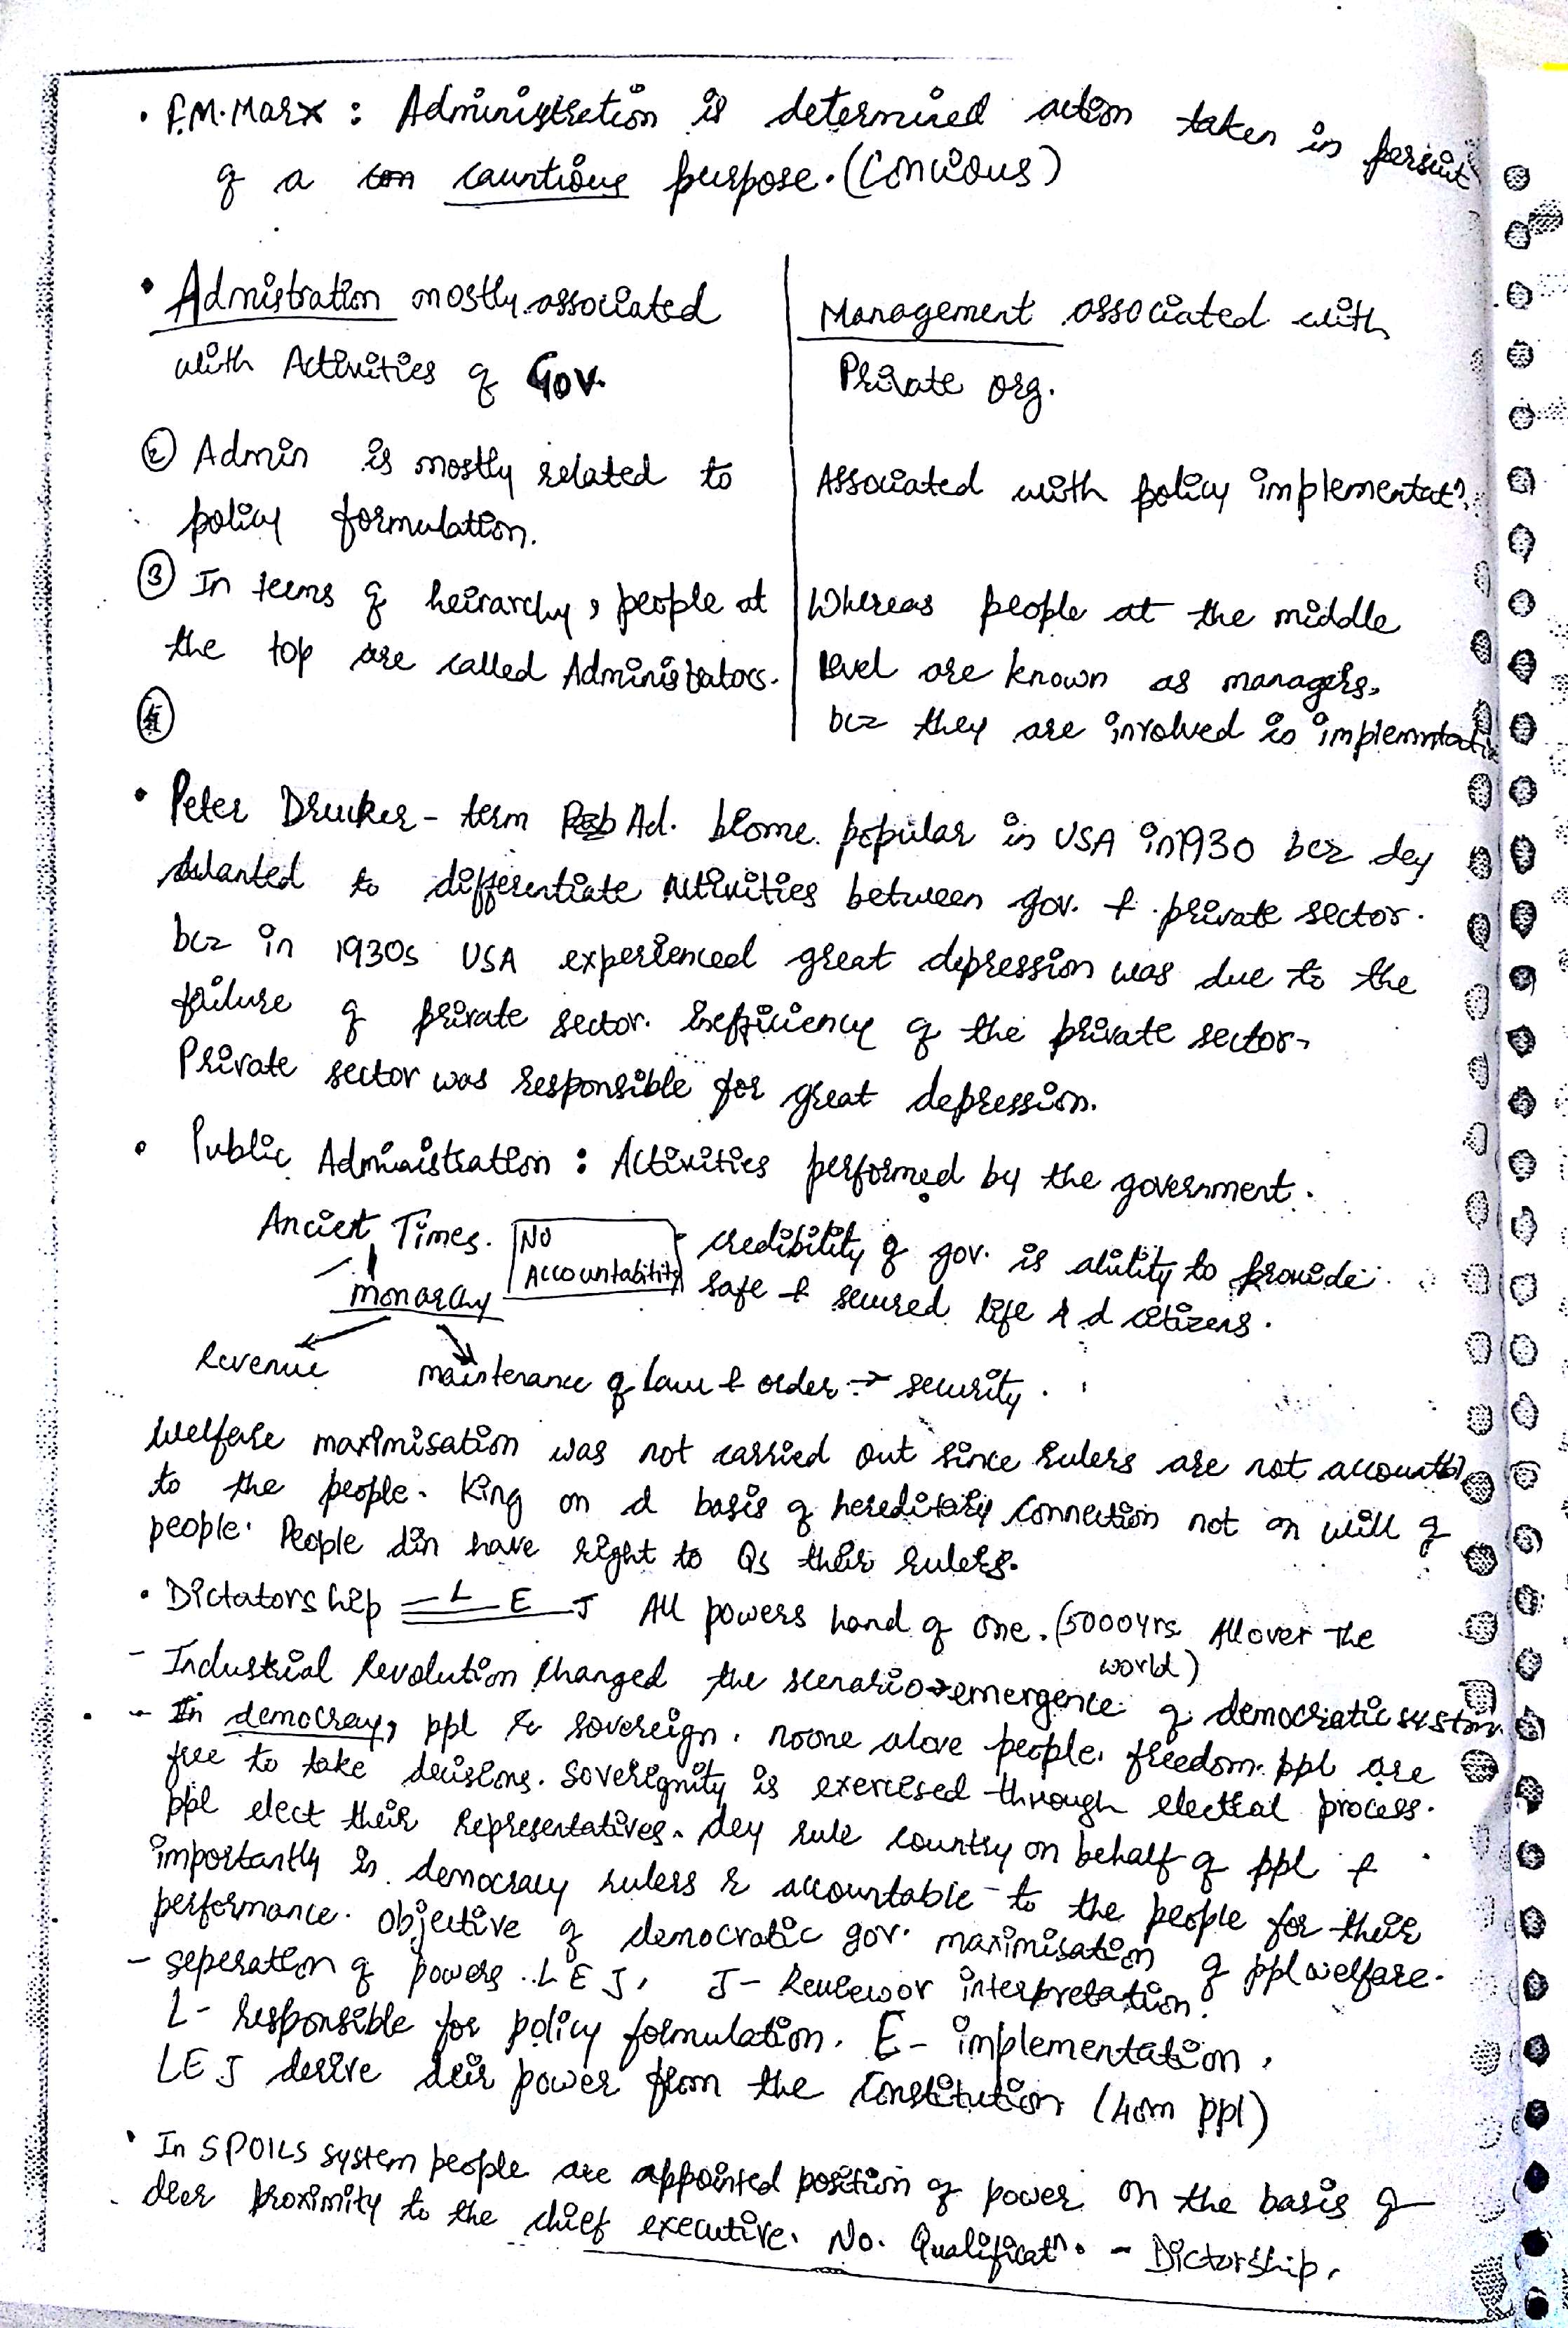 • F.M. Marx : Administration is determined action taken in persuit
of a con cauntious purpose. (Concious)
• Admistration mostly associated
with Activities of Gov.
Management associated with
Private org.
② Admin is mostly related to
policy formulation.
Associated with policy implementatⁿ.
③ In terms of heirarchy, people at
the top are called Administrators.
Whereas people at the middle
level are known as managers,
bcz they are involved in implemntati
④
• Peter Drucker - term Pub Ad. bcome popular in USA in 1930 bcz dey
wanted to differentiate Activities between gov. & private sector.
bcz in 1930s USA experienced great depression was due to the
failure of private sector. Inefficiency of the private sector.
Private sector was responsible for great depression.
• Public Administration : Activities performed by the government.
Ancient Times.
No
Accountability
credibility of gov. is ability to provide
safe & secured life d citizens.
monarchy
Revenue
maintenance of law & order → security.
Welfare maximisation was not carried out since rulers are not accountbl
to the people. King on d basis of hereditary connection not on will of
people. People din have right to Qs their rulers.
• Dictatorship - L E J All powers hand of one. (5000yrs All over the
world)
- Industrial Revolution changed the scenario → emergence of democratic system
- In democracy, ppl r sovereign. noone above people. freedom. ppl are
free to take decisions. Sovereignity is exercised through electral process.
ppl elect their representatives. dey rule country on behalf of ppl &
importantly in democracy rulers r accountable to the people for their
performance. Objective of democratic gov. maximisation of ppl welfare.
- seperation of powers L E J. J - Review or interpretation.
L - responsible for policy formulation. E - implementation.
LEJ derive deir power from the Constitution (4om ppl)
• In SPOILS system people are appointed position of power on the basis of
deer proximity to the chief executive. No. Qualificatⁿ. - Dictorship.